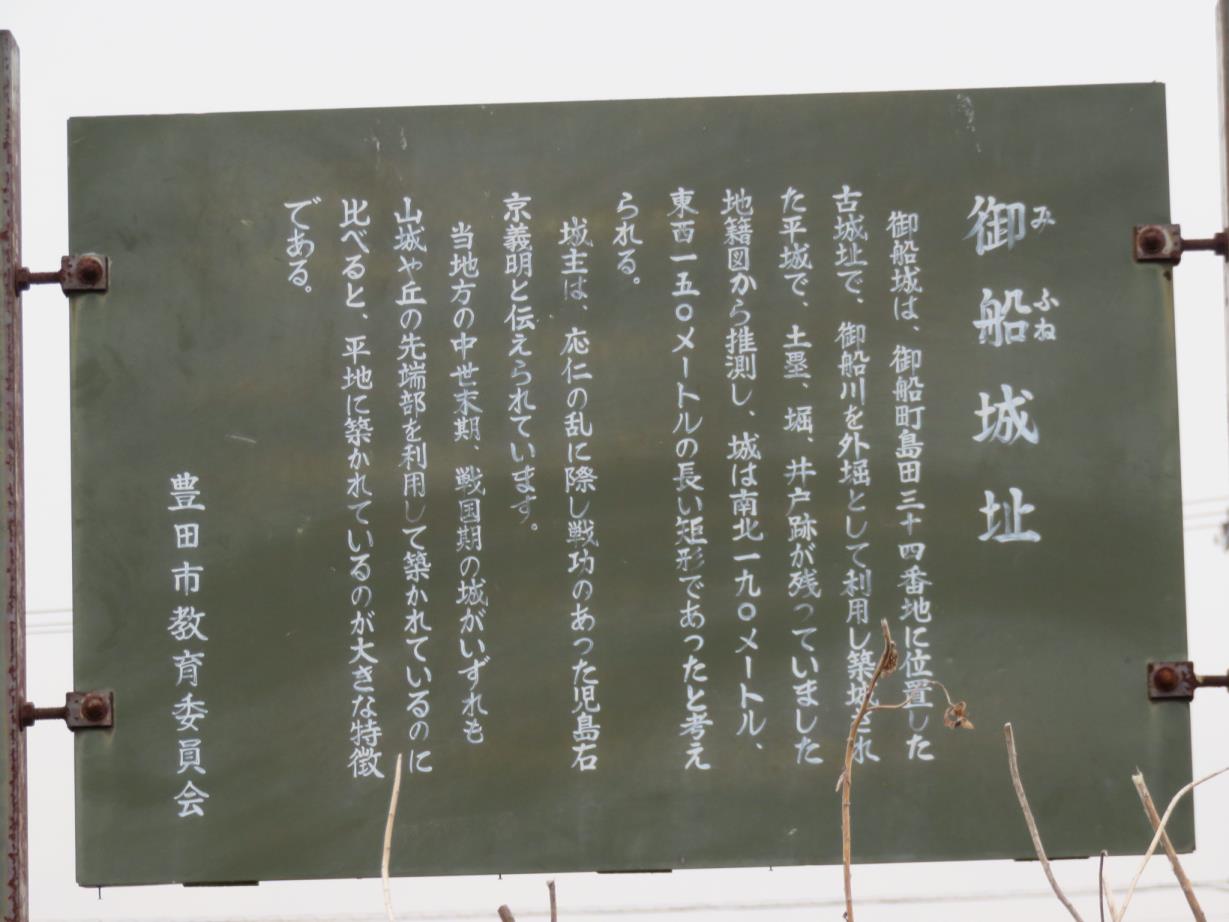 御船城址
みふね
御船城は、御船町島田三十四番地に位置した
古城址で、御船川を外堀として利用し築城され
た平城で、土塁、堀、井戸跡が残っていました
地籍図から推測し、城は南北一九〇メートル、
東西一五〇メートルの長い矩形であったと考え
られる。
城主は、応仁の乱に際し戦功のあった児島右
京義明と伝えられています。
当地方の中世末期、戦国期の城がいずれも
山城や丘の先端部を利用して築かれているのに
比べると、平地に築かれているのが大きな特徴
である。
豊田市教育委員会